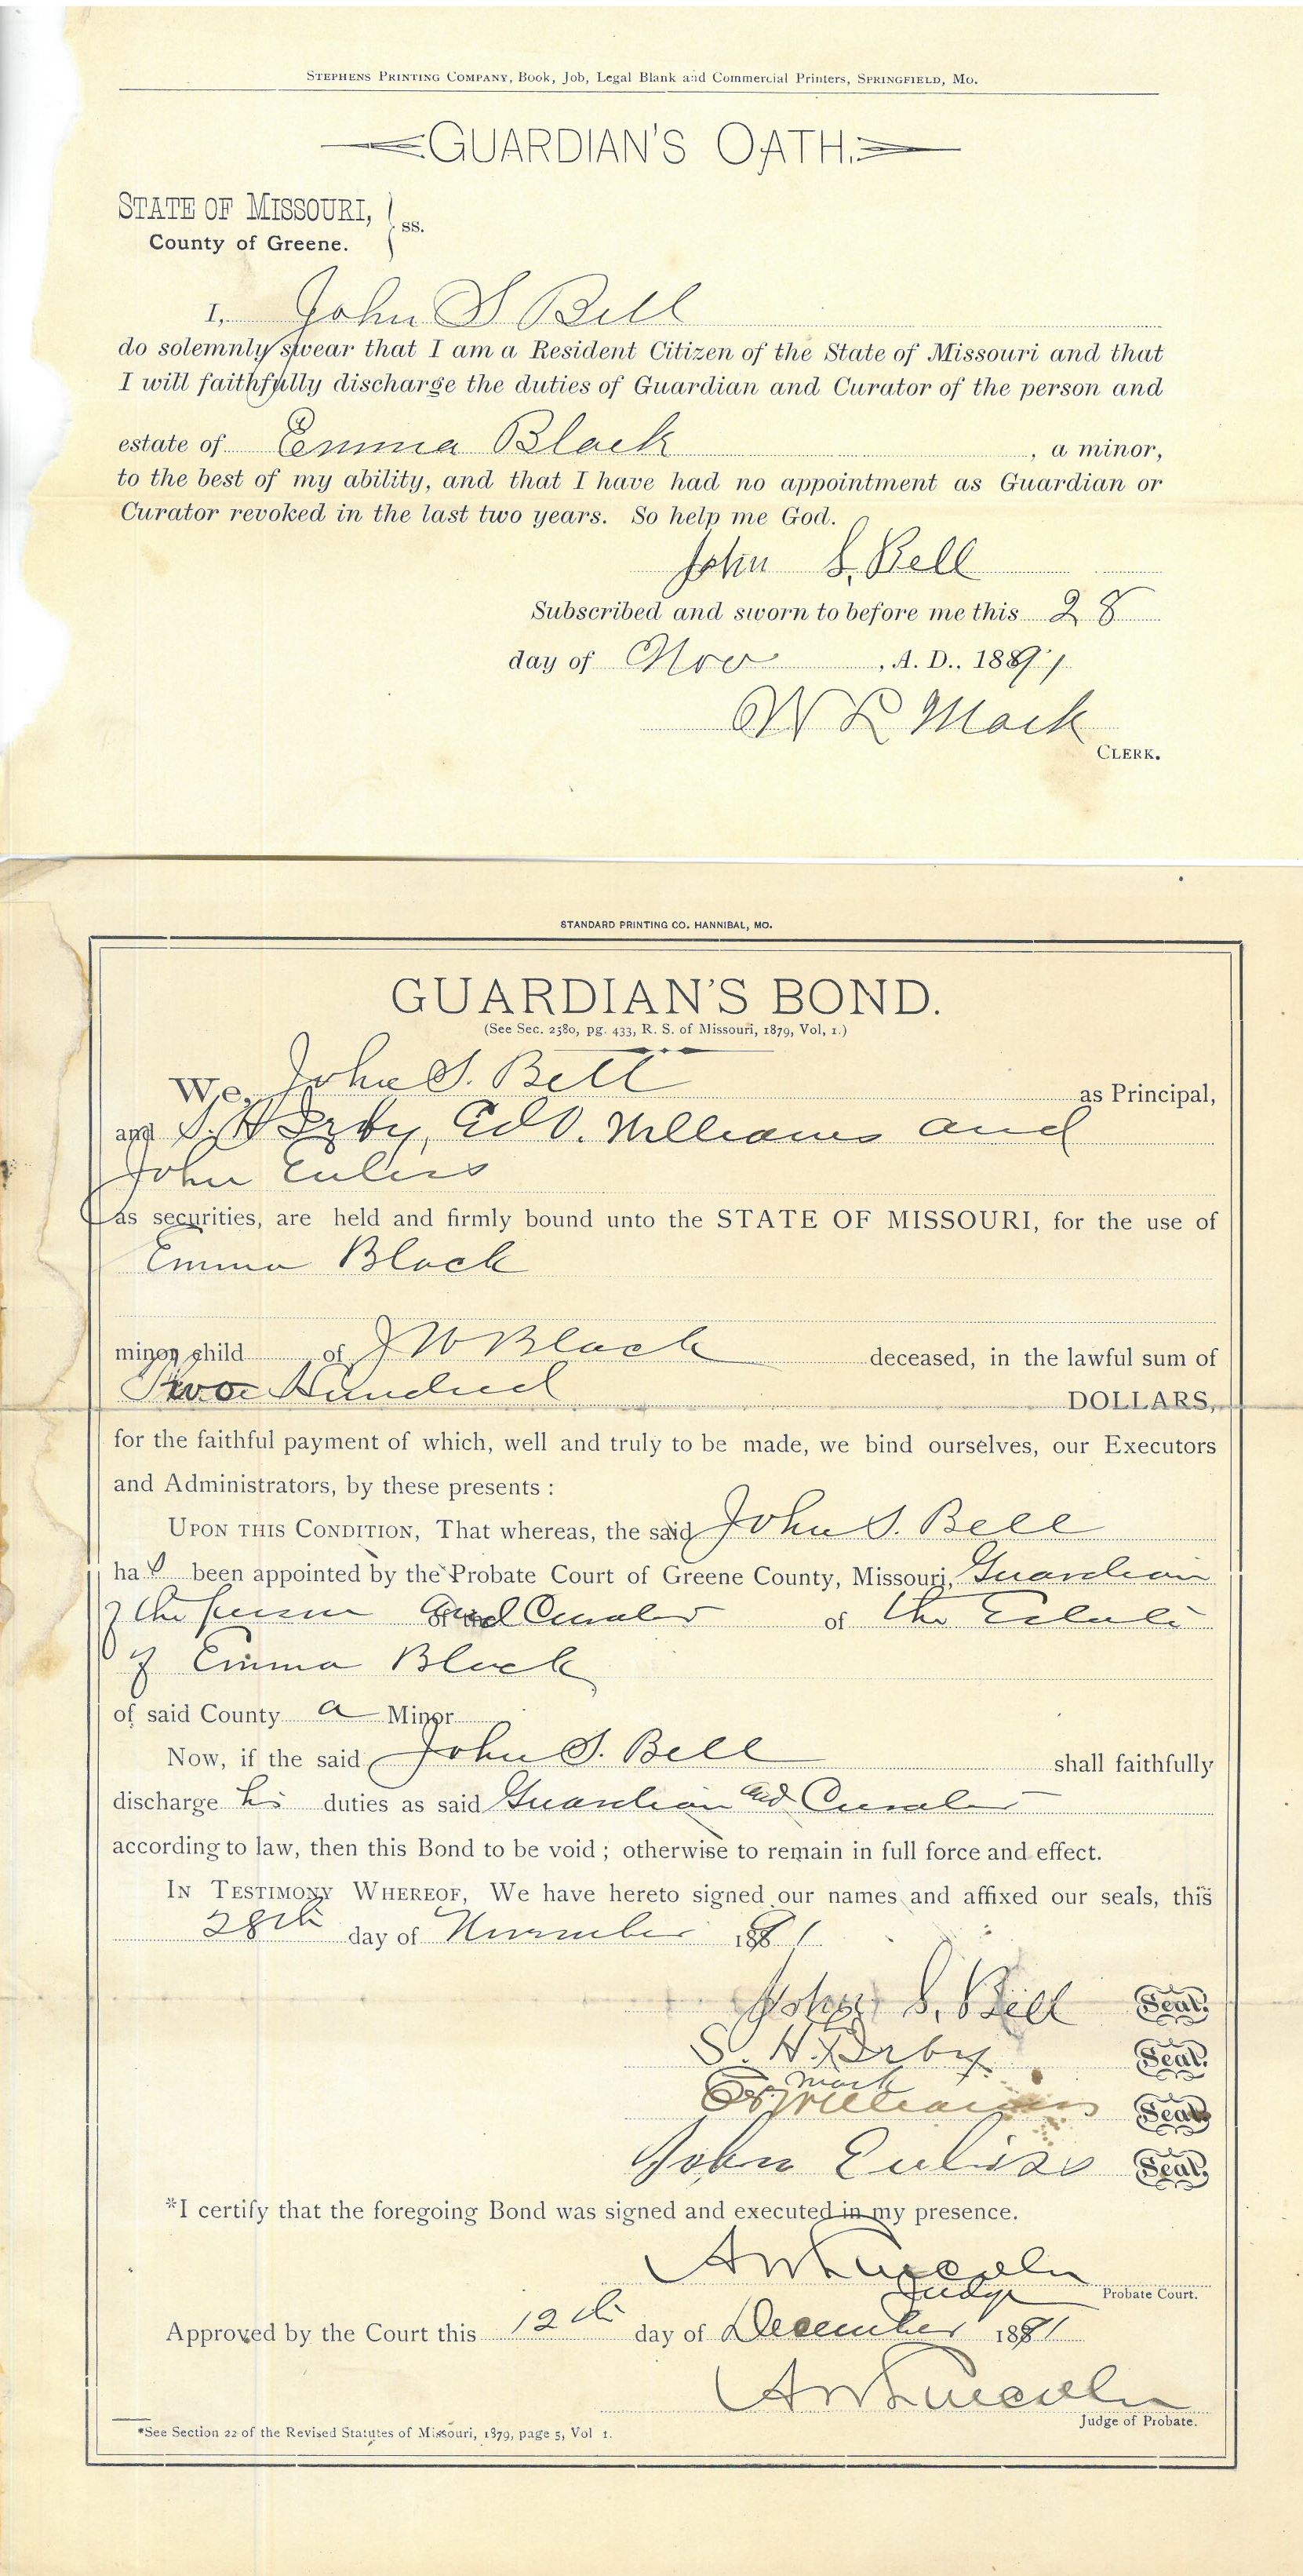 STEPHENS PRINTING COMPANY, Book, Job, Legal Blank and Commercial Printers, SPRINGFIELD, MO.
GUARDIAN'S OATH.
STATE OF MISSOURI, } ss.
County of Greene.
I, John S Bell
do solemnly swear that I am a Resident Citizen of the State of Missouri and that
I will faithfully discharge the duties of Guardian and Curator of the person and
estate of Emma Black, a minor,
to the best of my ability, and that I have had no appointment as Guardian or
Curator revoked in the last two years. So help me God.
John S. Bell
Subscribed and sworn to before me this 28
day of Nov, A. D., 1891
W R Mack
CLERK.
STANDARD PRINTING CO. HANNIBAL, MO.
GUARDIAN'S BOND.
(See Sec. 2580, pg. 433, R. S. of Missouri, 1879, Vol, 1.)
We, John S. Bell as Principal,
and S. H Irby, Ed V. Williams and
John Euliss
as securities, are held and firmly bound unto the STATE OF MISSOURI, for the use of
Emma Black
minor child of J W Black deceased, in the lawful sum of
Two Hundred DOLLARS,
for the faithful payment of which, well and truly to be made, we bind ourselves, our Executors
and Administrators, by these presents :
UPON THIS CONDITION, That whereas, the said John S. Bell
has been appointed by the Probate Court of Greene County, Missouri, Guardian
of the person and Curator of the Estate
of Emma Black
of said County a Minor
Now, if the said John S. Bell shall faithfully
discharge his duties as said Guardian and Curator
according to law, then this Bond to be void ; otherwise to remain in full force and effect.
IN TESTIMONY WHEREOF, We have hereto signed our names and affixed our seals, this
28th day of November 1891
John S. Bell Seal.
S. H. X Irby Seal.
mark
Williams Seal.
John Euliss Seal.
*I certify that the foregoing Bond was signed and executed in my presence.
A W Lincoln
Judge Probate Court.
Approved by the Court this 12th day of December 1891
A W Lincoln
Judge of Probate.
*See Section 22 of the Revised Statutes of Missouri, 1879, page 5, Vol 1.